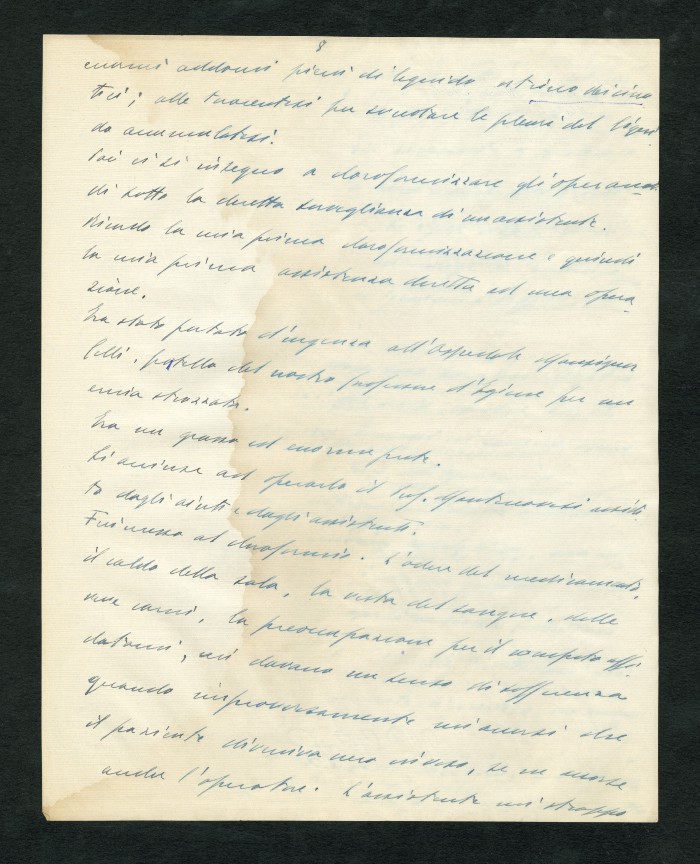 8
enormi addomi pieni di liquido
tici; alle toracentesi per svuotare le pleure del liqui
do accumulatosi.
Poi ci si insegnò a cloroformizzare gli operandi
di sotto la diretta sorveglianza di un assistente.
Ricordo la mia prima cloroformizzazione e quindi
la mia prima assistenza diretta ad una opera
zione.
Era stato portato d'urgenza all'Ospedale Monsignor
Celli, fratello del nostro professore d'Igiene per un
ernia strozzata.
Era un grasso ed enorme prete.
Si accinse ad operarlo il Prof. assisti
to dagli aiuti e dagli assistenti.
Fui messo al cloroformio. L'odore del medicamento,
il caldo della sala, la vista del sangue, delle
vive carni, la preoccupazione per il compito affi
datomi, mi davano un senso di sofferenza
quando improvvisamente mi accorsi che
il paziente diveniva nero in viso, se ne accorse
anche l'operatore. L'assistente mi strappò